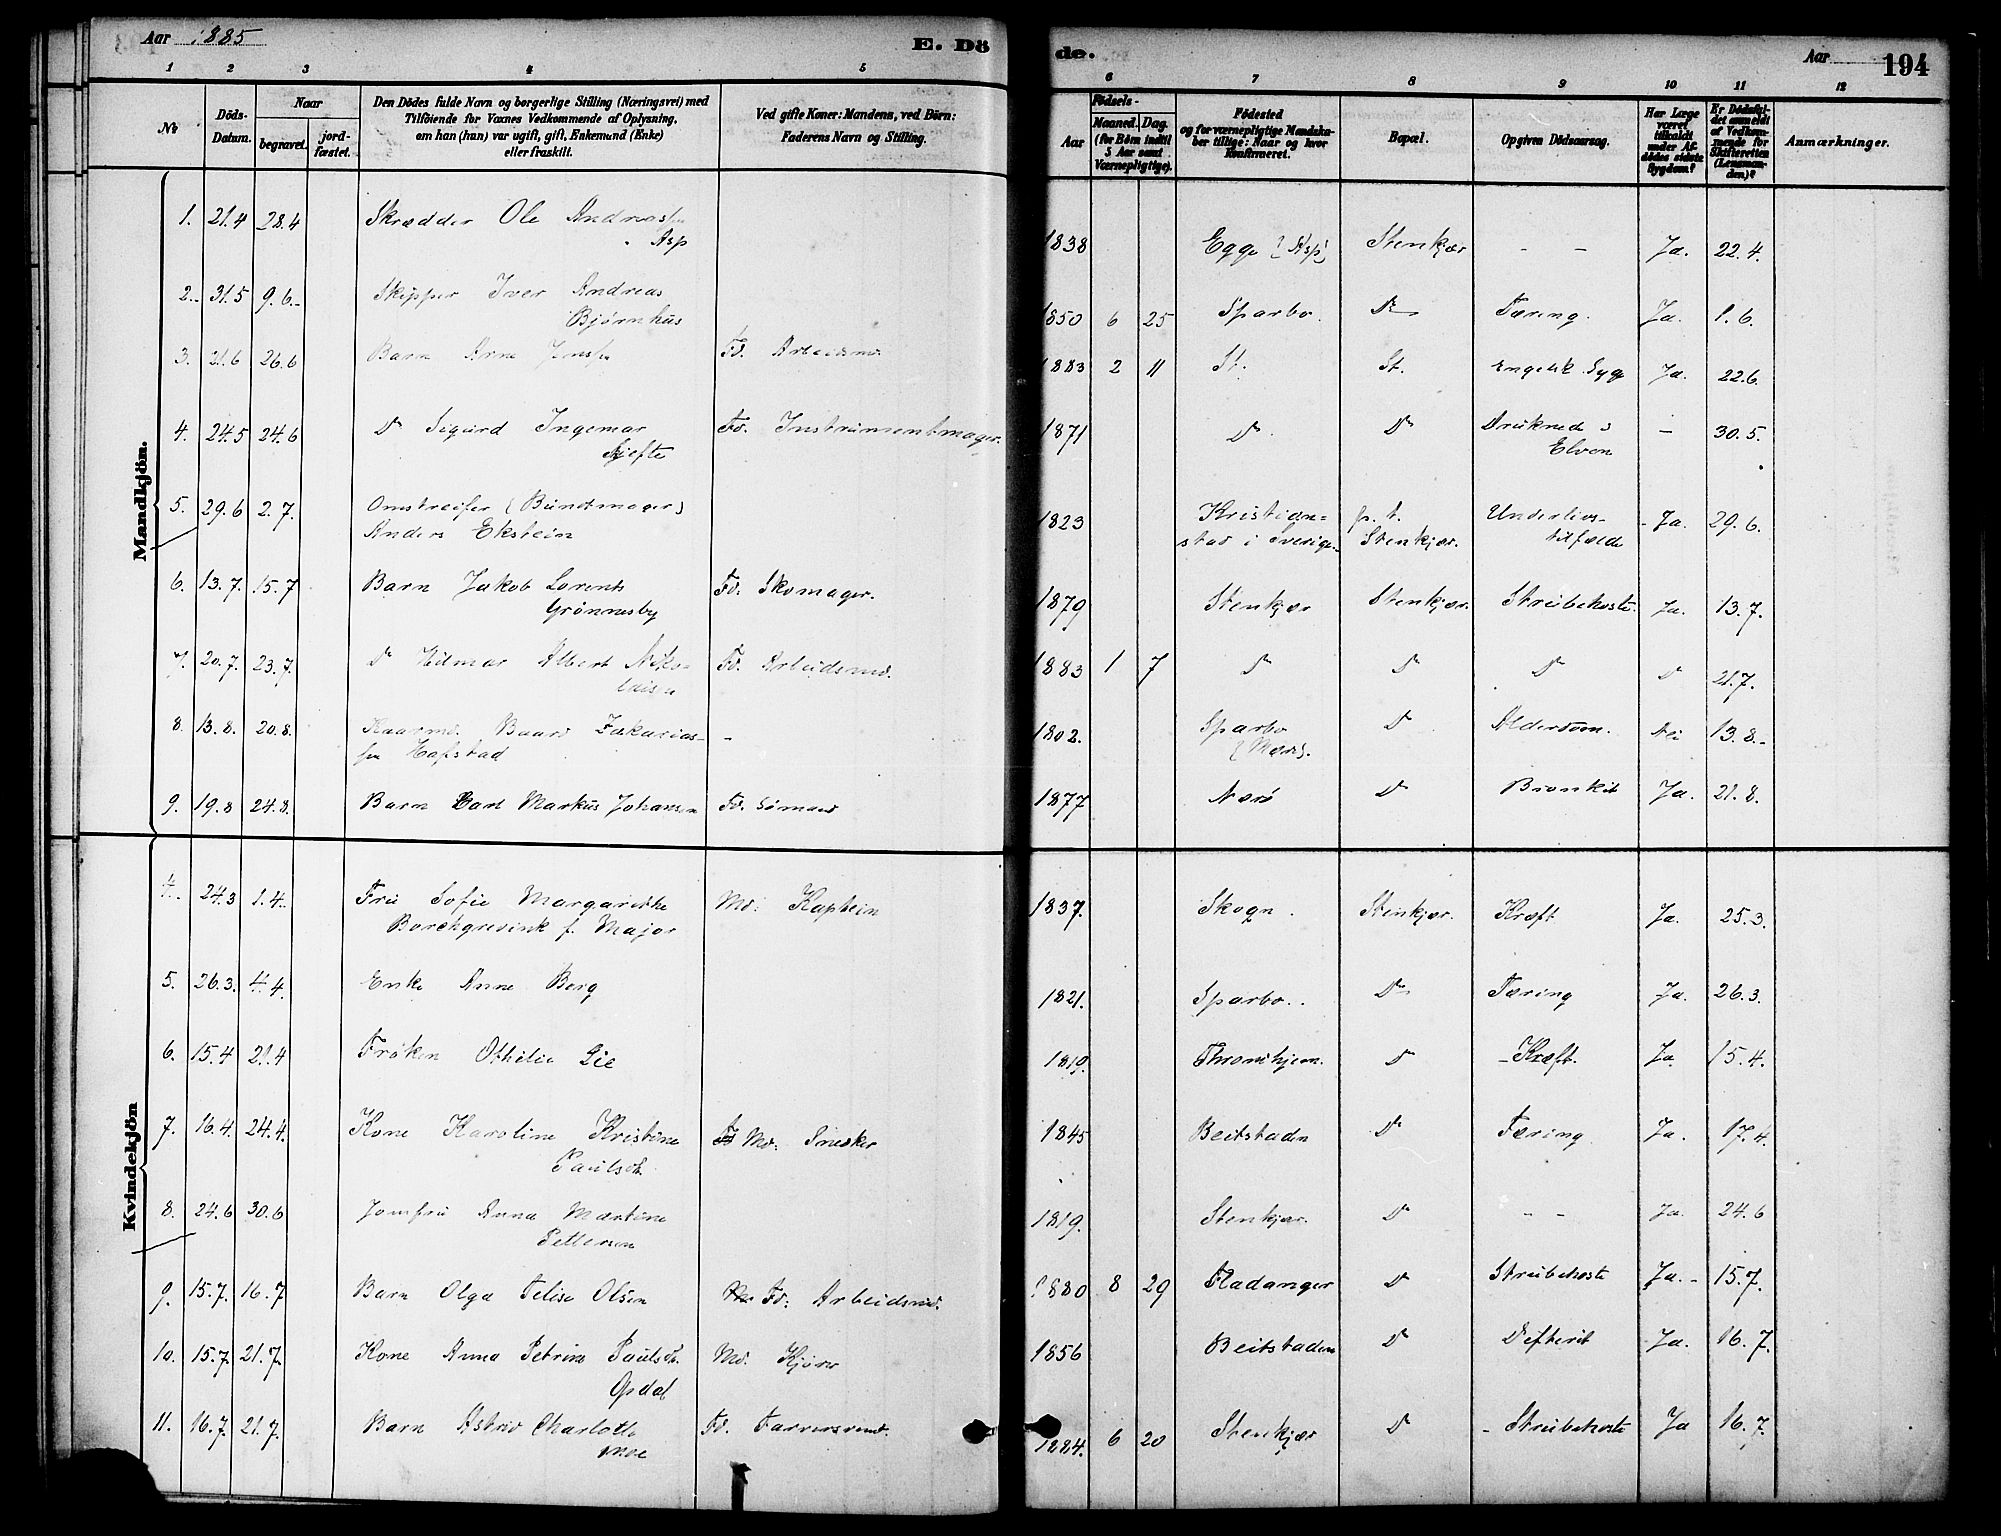 Aar 1885
E. Dö
de.
Aar
194
1 2 3 4 5
6 7 8 9 10 11 12
No
Döds-Datum.
Naar
begravet.
jordfæstet.
Den Dödes fulde Navn og borgerlige Stilling (Næringsvei) med
Tilföiende for Voxnes Vedkommende af Oplysning,
om han (hun) var ugift, gift, Enkemand (Enke)
eller fraskilt.
Ved gifte Koner: Mandens, ved Börn:
Faderens Navn og Stilling.
Födsels-
Aar
Maaned. Dag.
(for Börn indtil
5 Aar samt
Værnepligtige).
Födested
og for værnepligtige Mandska-
ber tillige: Naar og hvor
konfirmeret.
Bopæl.
Opgiven Dödsaarsag.
Har Læge
været
tilkaldt
under Af-
dödes sidste
Sygdom?
Er Dödsfal-
det anmeldt
af Vedkom-
mende for
Skifteretten
(Lensman-
den)?
Anmærkninger.
Mandkjön.
1. 21.4 28.4 Skrædder Ole Andreassen Asp 1838 Egge (Asp) Stenkjær - - Ja. 22.4.
2. 31.5 9.6. Skipper Iver Andreas Bjørnhus 1850 6 25 Sparbo. Do Tæring. Ja. 1.6.
3. 21.6 26.6 Barn Arne Jensen Fd. Arbeidsmd. 1883 2 11 St. St. Engelsk Syge Ja. 22.6.
4. 24.5 24.6 Do Sigurd Ingemar Skjefte Fd. Instrumentmager. 1871 Do Do Druknede i Elven - 30.5.
5. 29.6 2.7. Omstreifer (Buntmager) Anders Ekstein 1823 Kristian=stad i Sverige p. t. Stenkjær. Underlivs-tilfælde Ja. 29.6.
6. 13.7. 15.7 Barn Jakob Lorents Grønnesby Fd. Skomager. 1879 Stenkjær Stenkjær Strubehoste. Ja. 13.7.
7. 20.7. 23.7. Do Hilmar Albert Nikolaisen Fd. Arbeidsmd. 1883 1 7 Do Do Do Do 21.7.
8. 13.8. 20.8. Kaarmd. Baard Zakariassen Hofstad - 1802. Sparbo (Mære). Do Alderdom. Nei 13.8.
9. 19.8 24.8. Barn Carl Markus Johansen Fd. Sömand 1877 Nærö Do Bronkit Ja. 21.8.
Kvindekjön
4. 24.3 1.4. Fru Sofie Margarethe Borchgrevink f. Major Md: Kaptein 1837. Skogn. Stenkjær. Kræft Ja. 25.3.
5. 26.3. 4.4. Enke Anne Berg 1821. Sparbo. Do Tæring Ja. 26.3.
6. 15.4 21.4 Frøken Othilie Lie 1819. Throndhjem. Do Kræft. Ja. 15.4.
7. 16.4. 24.4. Kone Karoline Kristine Paulsdt. Md: Snekker 1845 Beitstaden Do Tæring. Ja. 17.4.
8. 24.6 30.6 Jomfru Anna Martine Pettersen 1819. Stenkjær. Do - - Ja. 24.6
9. 15.7. 16.7 Barn Olga Felise Olsen Fd: Arbeidsmd. 1880 8 29 Fladanger Do Strubehoste Ja. - 15.7.
10. 15.7. 21.7. Kone Anna Petrine Paulsdt. Opdal Md. 1856 Beitstaden Do Difterit Ja. 16.7.
11. 16.7. 21.7. Barn Astrid Charlotte Moe Fd. Farversvend. 1884. 6 20 Stenkjær Do Strubehoste Ja 16.7.